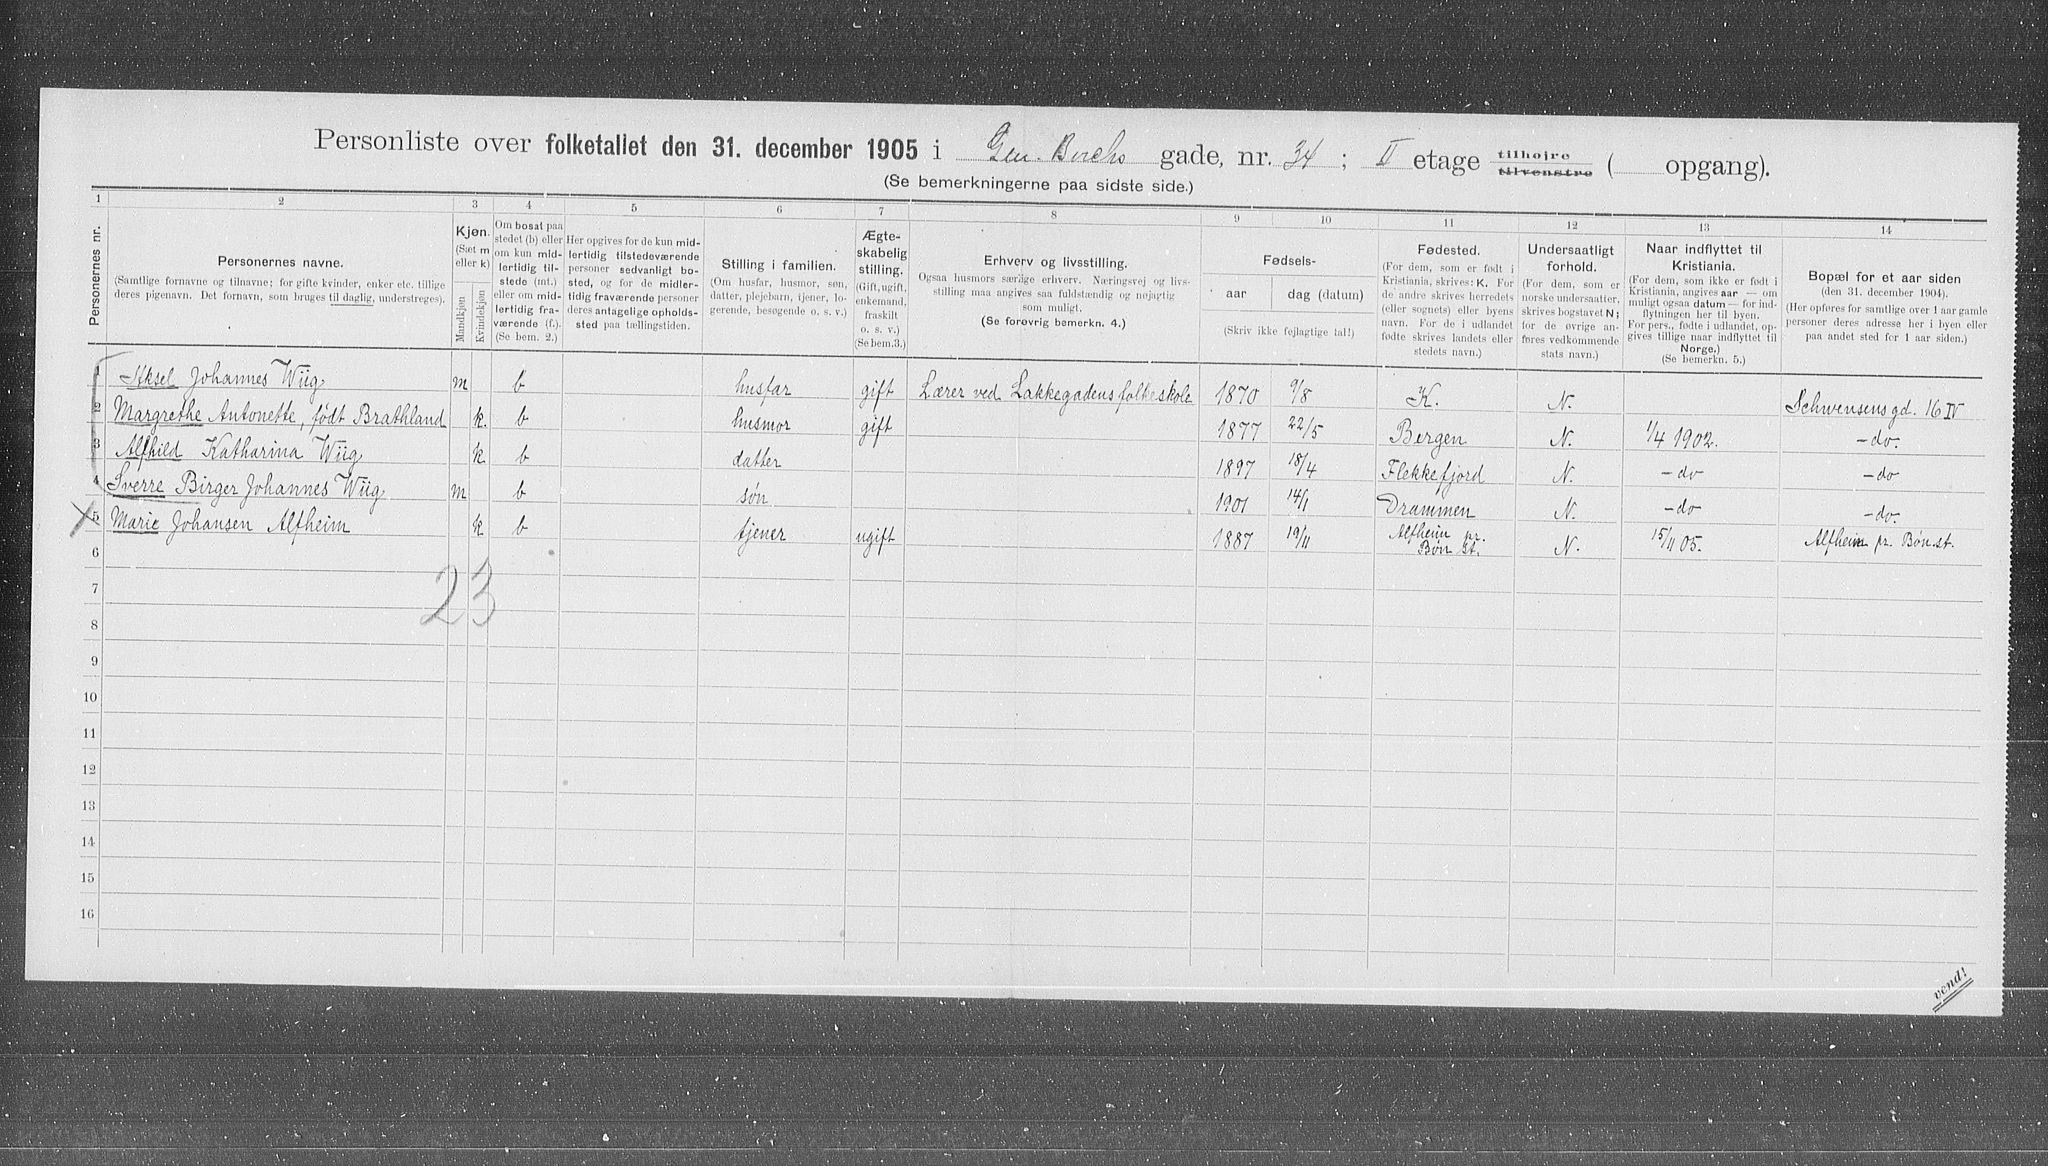 Personliste over folketallet den 31. december 1905 i Gen. Birchs gade, nr. 34; II etage tilhøjre tilvenstre ( opgang).
(Se bemerkningerne paa sidste side.)
1 2 3 4 5 6 7 8 9 10 11 12 13 14
Personernes nr.
Personernes navne.
(Samtlige fornavne og tilnavne; for gifte kvinder, enker etc. tillige
deres pigenavn. Det fornavn, som bruges til daglig, understreges).
Kjøn.
(Sæt m
eller k)
Mandkjøn
Kvindekjøn
Om bosat paa
stedet (b) eller
om kun mid-
lertidig til-
stede (mt.)
eller om mid-
lertidig fra-
værende (f.).
(Se bem. 2.)
Her opgives for de kun mid-
lertidig tilstedeværende
personer sedvanligt bo-
sted, og for de midler-
tidig fraværende personer
deres antagelige opholds-
sted paa tællingstiden.
Stilling i familien.
(Om husfar, husmor, søn,
datter, plejebarn, tjener, lo-
gerende, besøgende o. s. v.)
Ægte-
skabelig
stilling.
(Gift, ugift,
enkemand,
fraskilt
o. s. v.)
(Se bem.3.)
Erhverv og livsstilling.
Ogsaa husmors særlige erhverv. Næringsvej og livs-
stilling maa angives saa fuldstændig og nøjagtig
som muligt.
(Se forøvrig bemerkn. 4.)
Fødsels-
aar
dag (datum)
(Skriv ikke fejlagtige tal!)
Fødested.
(For dem, som er født i
Kristiania, skrives: K. For
de andre skrives herredets
(eller sognets) eller byens
navn. For de i udlandet
fødte skrives landets eller
stedets navn.)
Undersaatligt
forhold.
(For dem, som er
norske undersaatter,
skrives bogstavet N;
for de øvrige an-
føres vedkommende
stats navn.)
Naar indflyttet til
Kristiania.
(For dem, som ikke er født i
Kristiania, angives aar — om
muligt ogsaa datum — for ind-
flytningen her til byen.
For pers., fødte i udlandet, op-
gives tillige naar indflyttet til
Norge.)
(Se bemerkn. 5.)
Bopæl for et aar siden
(den 31. december 1904).
(Her opføres for samtlige over 1 aar gamle
personer deres adresse her i byen eller
paa andet sted for 1 aar siden.)
1 Aksel Johannes Wiig m b husfar gift Lærer ved Lakkegadens folkeskole 1870 9/8 K. N. Schwensens gd. 16 IV
2 Margrethe Antonette, født Brathland k. b husmor gift 1877 22/5 Bergen N. 1/4 1902. - do.
3 Alfhild Katharina Wiig k b datter 1897 18/4 Flekkefjord N. - do - do
4 Sverre Birger Johannes Wiig m b søn 1901 14/1 Drammen N. - do - do.
5 Marie Johansen Alfheim k b tjener ugift 1887 19/11 Alfheim pr. Bøn st. N. 15/11 05. Alfheim pr. Bøn st.
6
23
7
8
9
10
11
12
13
14
15
16
vend!